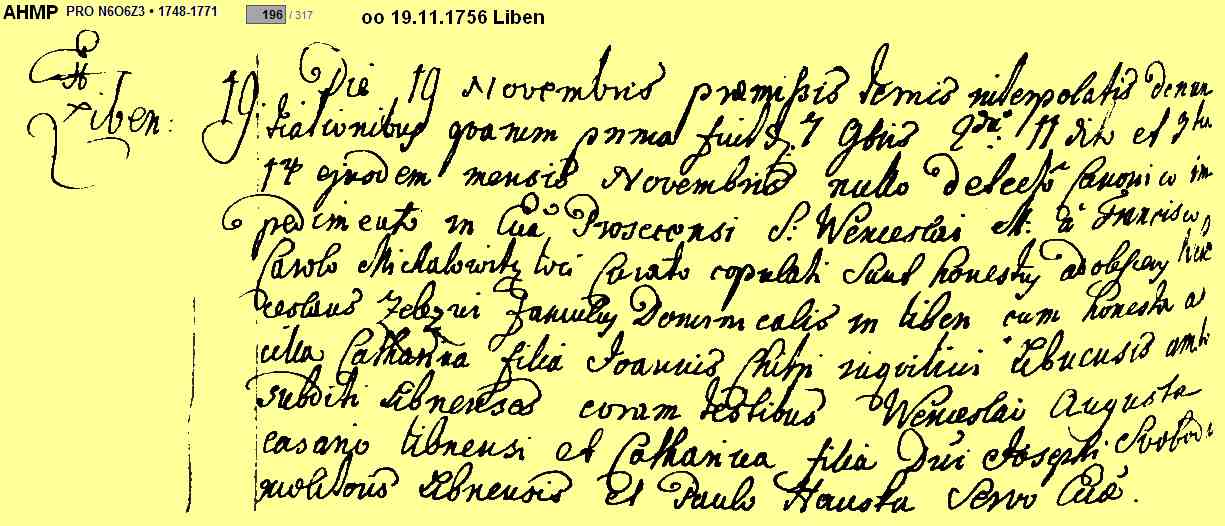 AHMP PRO N6O6Z3 • 1748-1771 196 / 317 oo 19.11.1756 Liben
Liben:
19. Die 19 Novembris præmissis ternis interpolatis denun
tiationibus quarum prima fuit d. 7 9bris 2da 11 dito et 3tia
14 ejusdem mensis Novembris nullo detecto Canonico im
pedimento in Prosecensi S. Wenceslai M. à Francisco
Carolo Michalowitz loci Curato copulati sunt honestus adolescens Wen
ceslaus Zelezni famulus Dominicalis in Liben cum honesta an
cilla Catharina filia Joannis inquilini Libnensis ambo
subditi Libnenses coram testibus Wenceslai Augusta
casario Libnensi et Catharina filia Dni Josephi Svoboda
molitoris Libnensis et Paulo Hausta Servo